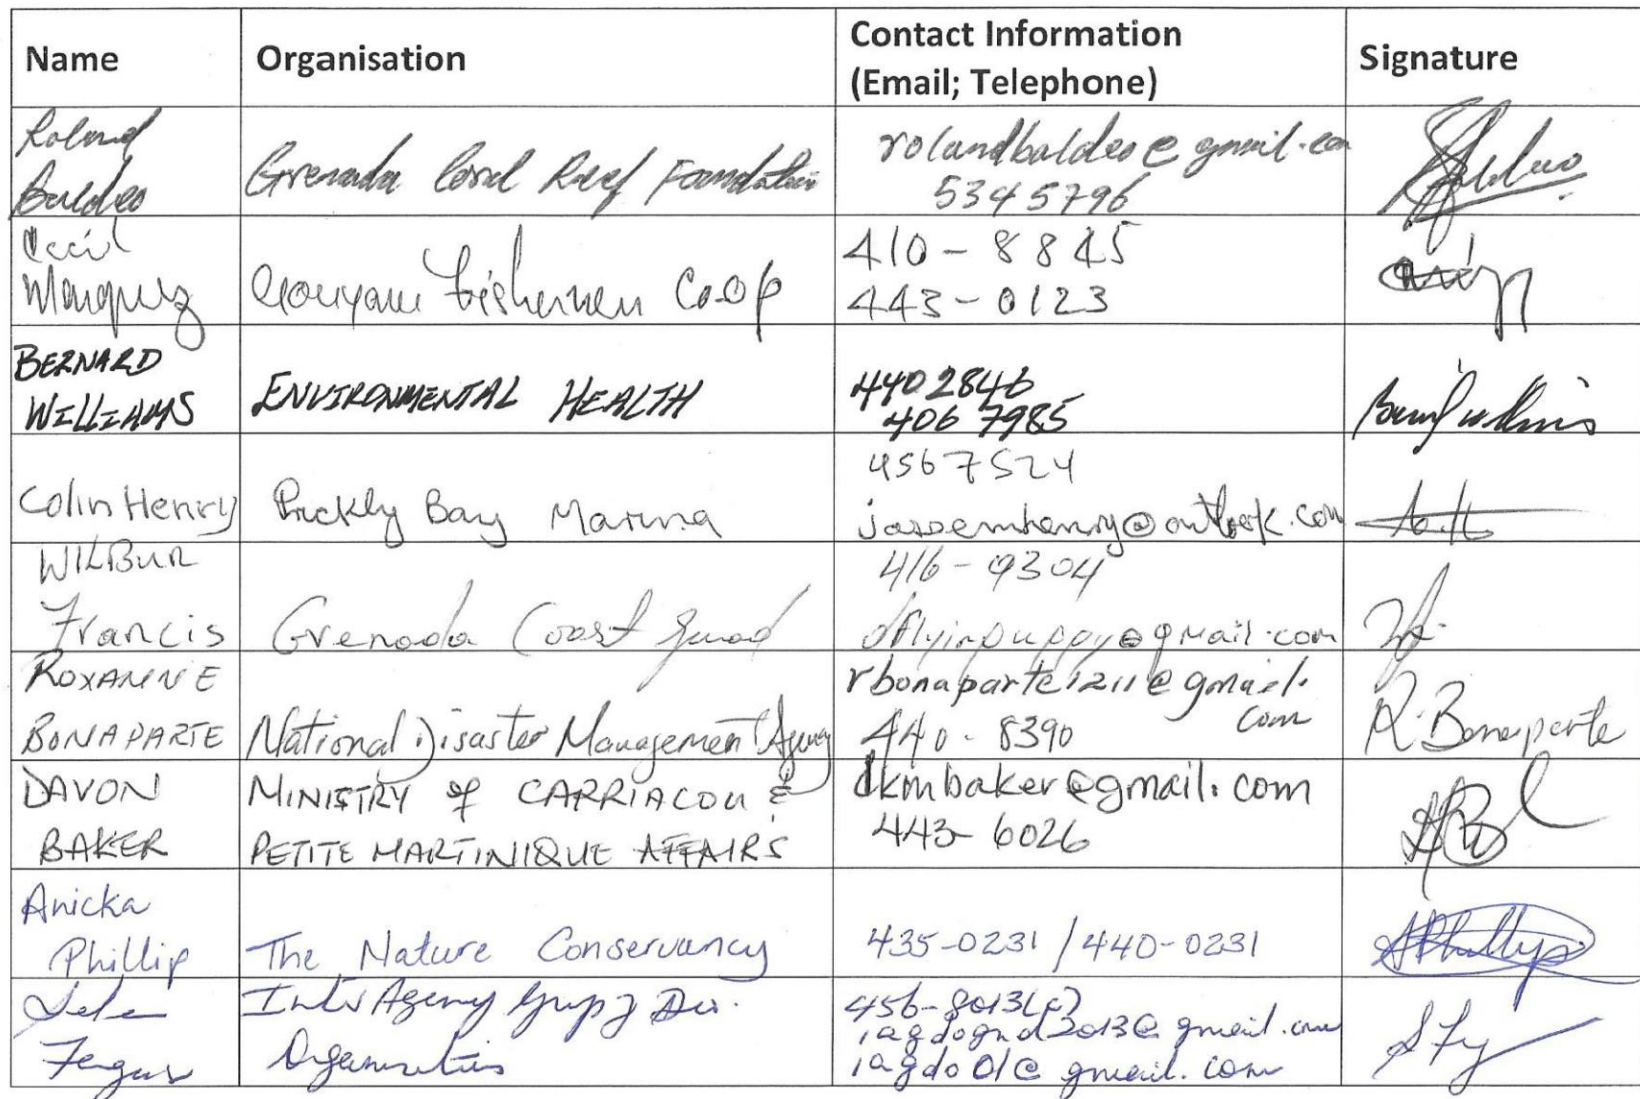 Name Organisation Contact Information
(Email; Telephone) Signature
Roland
Baldeo
Grenada Coral Reef Foundation
rolandbaldeo@gmail.com
5345796
Cecil
Marquez
Gouyave Fishermen Co-op
410-8845
443-0123
BERNARD
WILLIAMS
ENVIRONMENTAL HEALTH
4402846
406 7985
Colin Henry
Prickly Bay Marina
4567524
jassemhenry@outlook.com
WILBUR
Francis
Grenada Coast Guard
416-9304
dflyinpuppy@gmail.com
ROXANNE
BONAPARTE
National Disaster Management Agency
rbonaparte1211@gmail.
com
440-8390
R. Bonaparte
DAVON
BAKER
MINISTRY of CARRIACOU &
PETITE MARTINIQUE AFFAIRS
dkmbaker@gmail.com
443-6026
Anicka
Phillip
The Nature Conservancy
435-0231 / 440-0231
APhillip
Fergus
Inter Agency Group of Dev.
Organisations
456-8013(c)
iagdognd2013@gmail.com
iagdo01@gmail.com